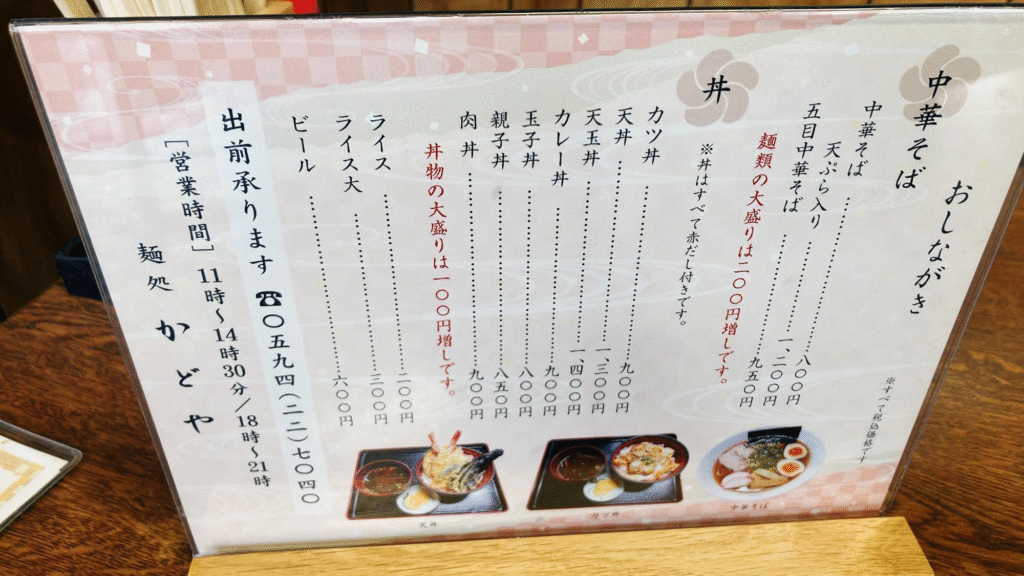 おしながき
※すべて税込価格です
中華そば
中華そば…八〇〇円
天ぷら入り…一、二〇〇円
五目中華そば…九五〇円
麺類の大盛りは二〇〇円増しです。
丼
※丼はすべて赤だし付きです。
カツ丼…九〇〇円
天丼…一、三〇〇円
天玉丼…一、四〇〇円
カレー丼…九〇〇円
玉子丼…八〇〇円
親子丼…八五〇円
肉丼…九〇〇円
丼物の大盛りは一〇〇円増しです。
ライス…二〇〇円
ライス大…三〇〇円
ビール…六〇〇円
出前承ります ☎〇五九四(二二)七〇四〇
[営業時間] 11時～14時30分/18時～21時
麺処 かどや
中華そば
カツ丼
天丼